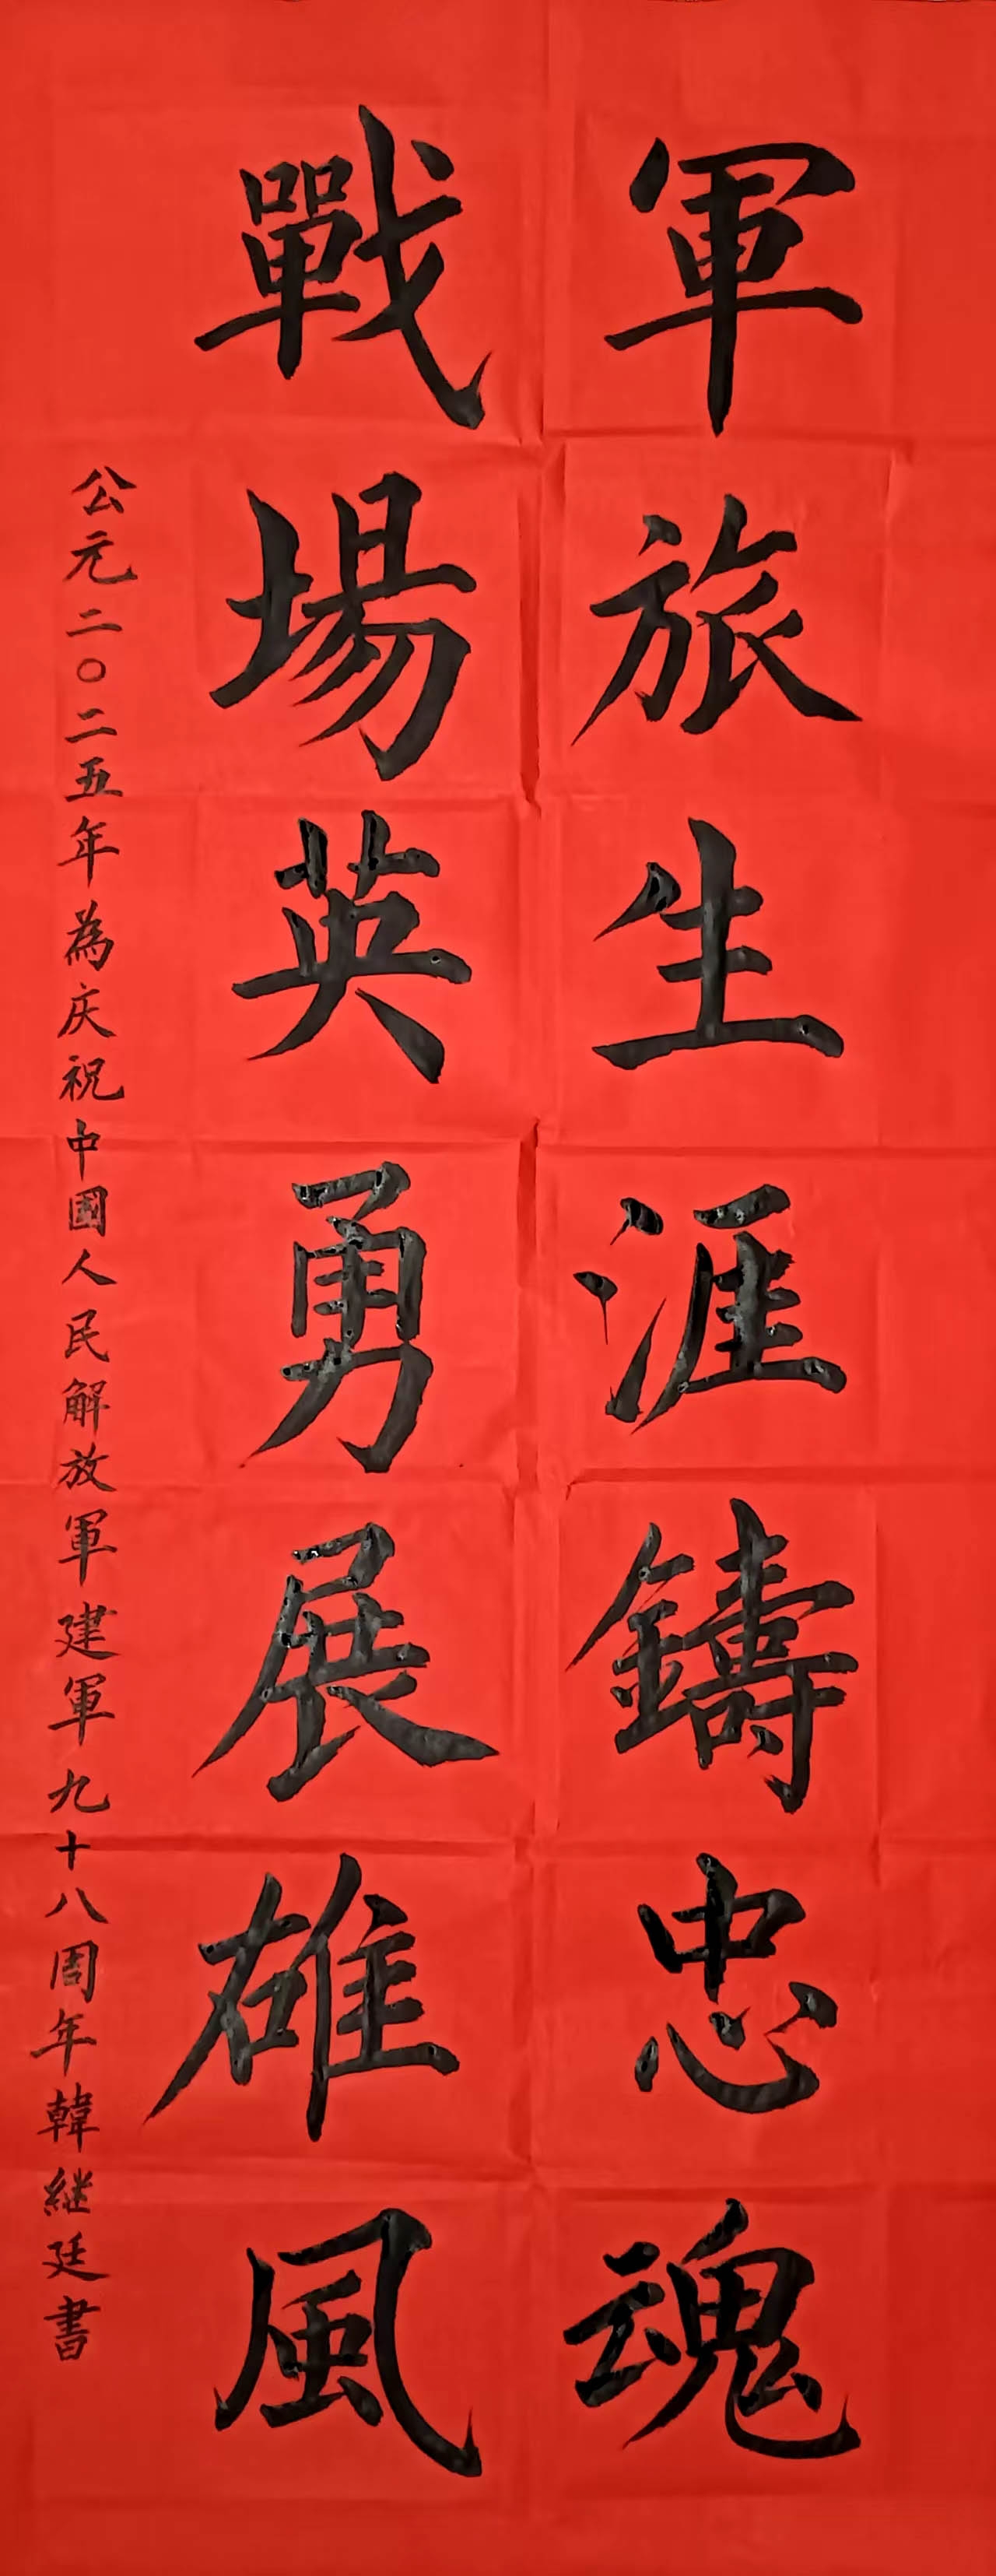 軍旅生涯鑄忠魂
戰場英勇展雄風
公元二〇二五年為庆祝中國人民解放軍建軍九十八周年韓继廷書